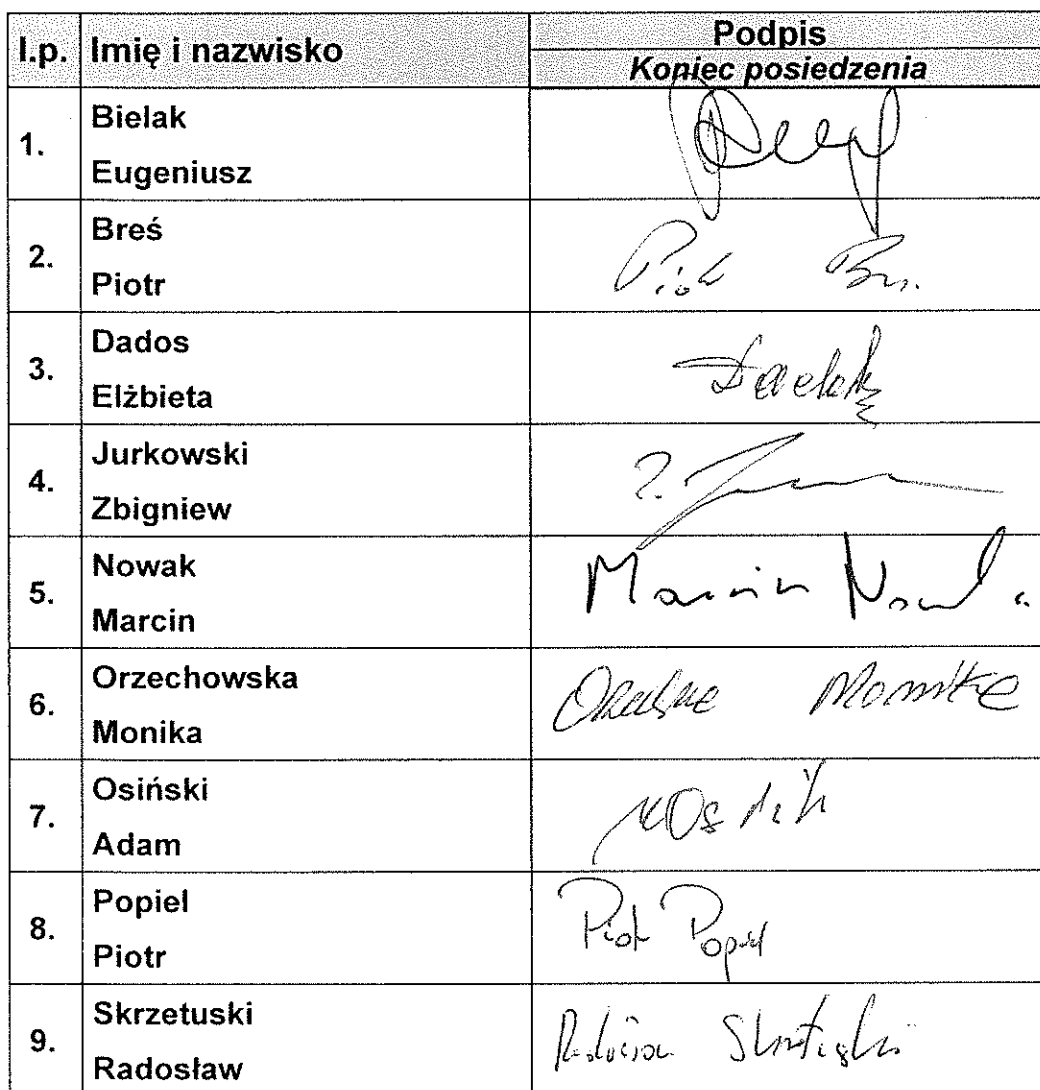 l.p. Imię i nazwisko Podpis
Koniec posiedzenia
1. Bielak
Eugeniusz
2. Breś
Piotr
3. Dados
Elżbieta
4. Jurkowski
Zbigniew
5. Nowak
Marcin
Marcin Nowak
6. Orzechowska
Monika
Monika
7. Osiński
Adam
8. Popiel
Piotr
Piotr Popiel
9. Skrzetuski
Radosław
Radosław Skrzetuski